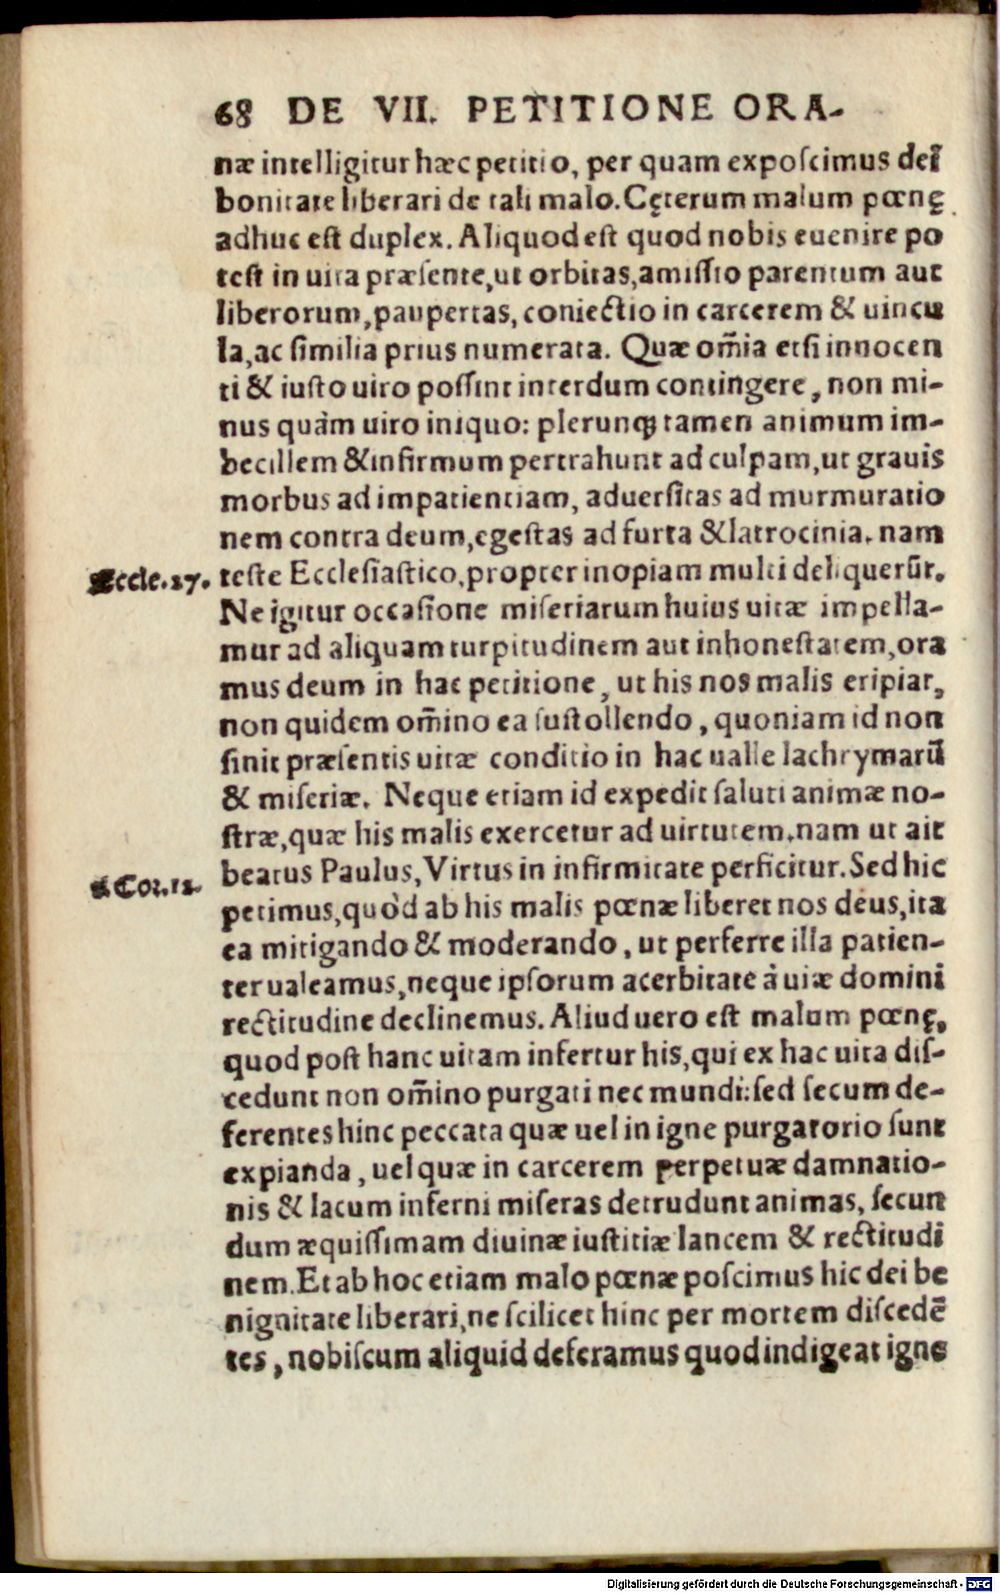 68 DE VII. PETITIONE ORA-
næ intelligitur hæc petitio, per quam exposcimus deī
bonitate liberari de tali malo. Cęterum malum pœnę
adhuc est duplex. Aliquod est quod nobis euenire po
test in uita præsente, ut orbitas, amissio parentum aut
liberorum, paupertas, coniectio in carcerem & uincu
la, ac similia prius numerata. Quæ om̃ia etsi innocen
ti & iusto uiro possint interdum contingere, non mi-
nus quàm uiro iniquo: plerunqꝫ tamen animum im-
becillem & infirmum pertrahunt ad culpam, ut grauis
morbus ad impatientiam, aduersitas ad murmuratio
nem contra deum, egestas ad furta & latrocinia. nam
Eccle.27. teste Ecclesiastico, propter inopiam multi deliquerũt.
Ne igitur occasione miseriarum huius uitæ impella-
mur ad aliquam turpitudinem aut inhonestatem, ora
mus deum in hac petitione, ut his nos malis eripiat,
non quidem om̃ino ea sustollendo, quoniam id non
sinit præsentis uitæ conditio in hac ualle lachrymarũ
& miseriæ. Neque etiam id expedit saluti animæ no-
stræ, quæ his malis exercetur ad uirtutem. nam ut ait
2 Cor.12. beatus Paulus, Virtus in infirmitate perficitur. Sed hic
petimus, quòd ab his malis pœnæ liberet nos deus, ita
ea mitigando & moderando, ut perferre illa patien-
ter ualeamus, neque ipsorum acerbitate à uiæ domini
rectitudine declinemus. Aliud uero est malum pœnę,
quod post hanc uitam infertur his, qui ex hac uita dis-
cedunt non om̃ino purgati nec mundi: sed secum de-
ferentes hinc peccata quæ uel in igne purgatorio sunt
expianda, uel quæ in carcerem perpetuæ damnatio-
nis & lacum inferni miseras detrudunt animas, secun
dum æquissimam diuinæ iustitiæ lancem & rectitudi
nem. Et ab hoc etiam malo pœnæ poscimus hic dei be
nignitate liberari, ne scilicet hinc per mortem discedē
tes, nobiscum aliquid deferamus quod indigeat igne
Digitalisierung gefördert durch die Deutsche Forschungsgemeinschaft - DFG